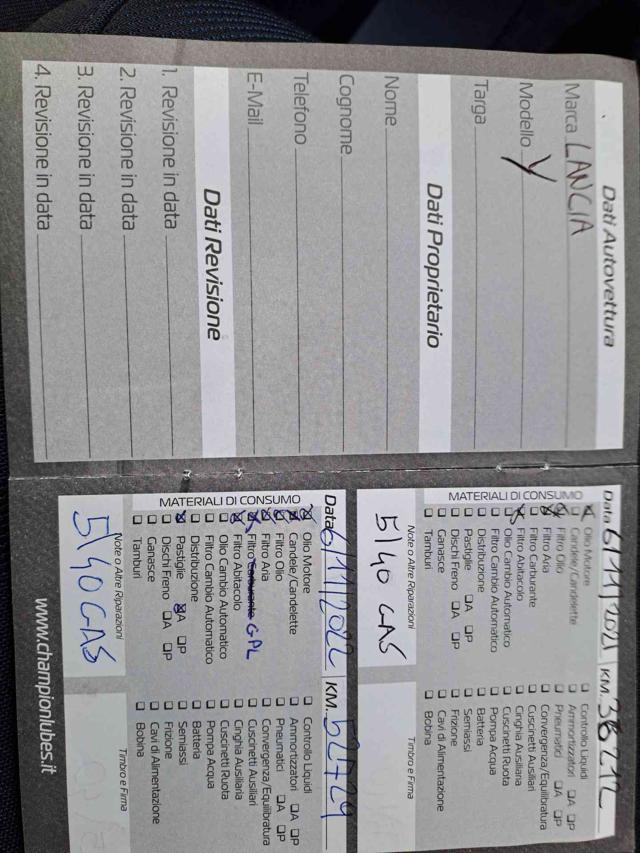 Dati Autovettura
Marca LANCIA
Modello Y
Targa
Dati Proprietario
Nome
Cognome
Telefono
E-Mail
Dati Revisione
1. Revisione in data
2. Revisione in data
3. Revisione in data
4. Revisione in data
Data 6/11/2021 KM. 38212
MATERIALI DI CONSUMO
Olio Motore
Candele/Candelette
Filtro Olio
Filtro Aria
Filtro Carburante
Filtro Abitacolo
Olio Cambio Automatico
Filtro Cambio Automatico
Distribuzione
Pastiglie A P
Dischi Freno A P
Ganasce
Tamburi
Controllo Liquidi
Ammortizzatori A P
Pneumatici A P
Convergenza/Equilibratura
Cuscinetti Ausiliari
Cinghia Ausiliaria
Cuscinetti Ruota
Pompa Acqua
Batteria
Semiassi
Frizione
Cavi di Alimentazione
Bobina
Note o Altre Riparazioni
5/40 GAS
Timbro e Firma
Data 6/11/2022 KM. 52724
MATERIALI DI CONSUMO
Olio Motore
Candele/Candelette
Filtro Olio
Filtro Aria
Filtro Carburante GPL
Filtro Abitacolo
Olio Cambio Automatico
Filtro Cambio Automatico
Distribuzione
Pastiglie A P
Dischi Freno A P
Ganasce
Tamburi
Controllo Liquidi
Ammortizzatori A P
Pneumatici A P
Convergenza/Equilibratura
Cuscinetti Ausiliari
Cinghia Ausiliaria
Cuscinetti Ruota
Pompa Acqua
Batteria
Semiassi
Frizione
Cavi di Alimentazione
Bobina
Note o Altre Riparazioni
5/40 GAS
Timbro e Firma
www.championlubes.it